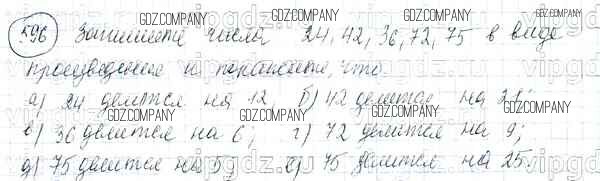 GDZ.COMPANY GDZ.COMPANY
596 Запишите числа 24, 42, 36, 72, 75 в виде
произведения и поясните, что
GDZ.COMPANY GDZ.COMPANY
а) 24 делится на 12, б) 42 делится на 21;
GDZ.COMPANY GDZ.COMPANY
в) 36 делится на 6; г) 72 делится на 9;
GDZ.COMPANY GDZ.COMPANY
д) 75 делится на 5; е) 75 делится на 25.